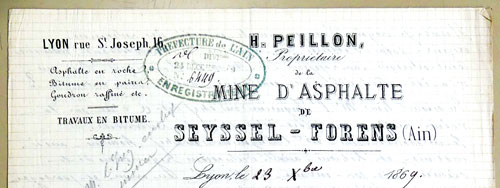 LYON rue St Joseph, 16.
Asphalte en roche
Bitume en pains
Goudron raffiné etc.
TRAVAUX EN BITUME.
PREFECTURE de L'AIN
6449
ENREGISTRE
H. PEILLON,
Propriétaire
de la
MINE D'ASPHALTE
DE
SEYSSEL - FORENS (Ain)
Lyon, le 23 Xbre 1869.